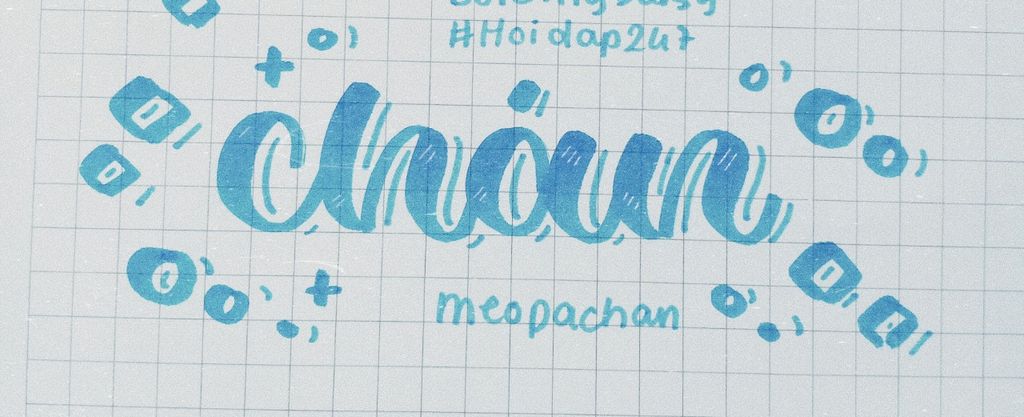 #Hoidap247
chȯun
meopachan